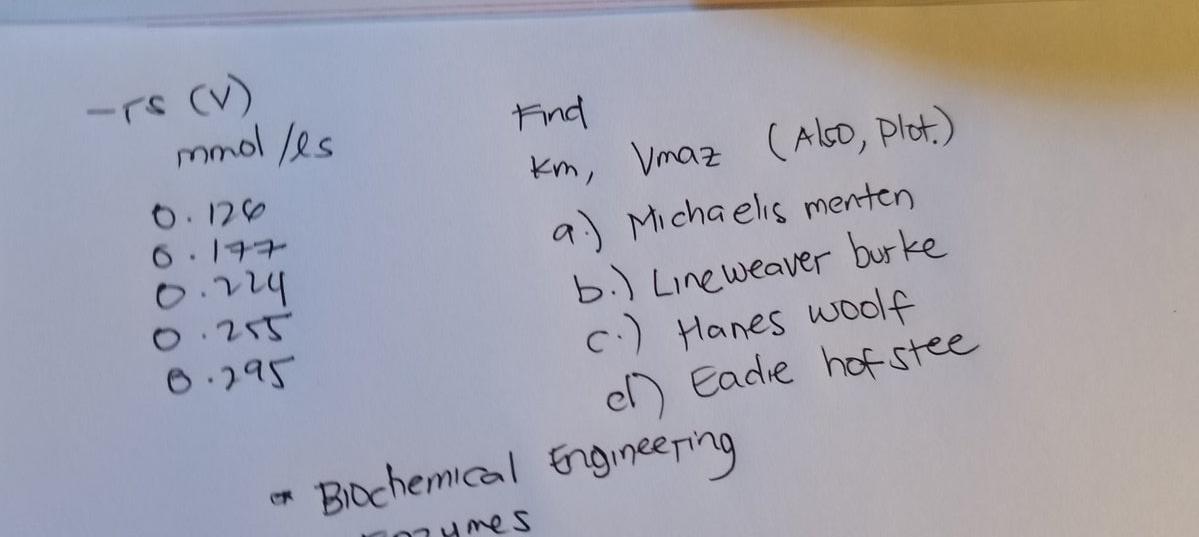 -rs (V)
mmol/ls
0.126
0.177
0.224
0.255
0.295
Find
Km, Vmaz (Also, Plot.)
a.) Michaelis menten
b.) Lineweaver burke
c.) Hanes woolf
d) Eadie hofstee
* Biochemical Engineering
Enzymes